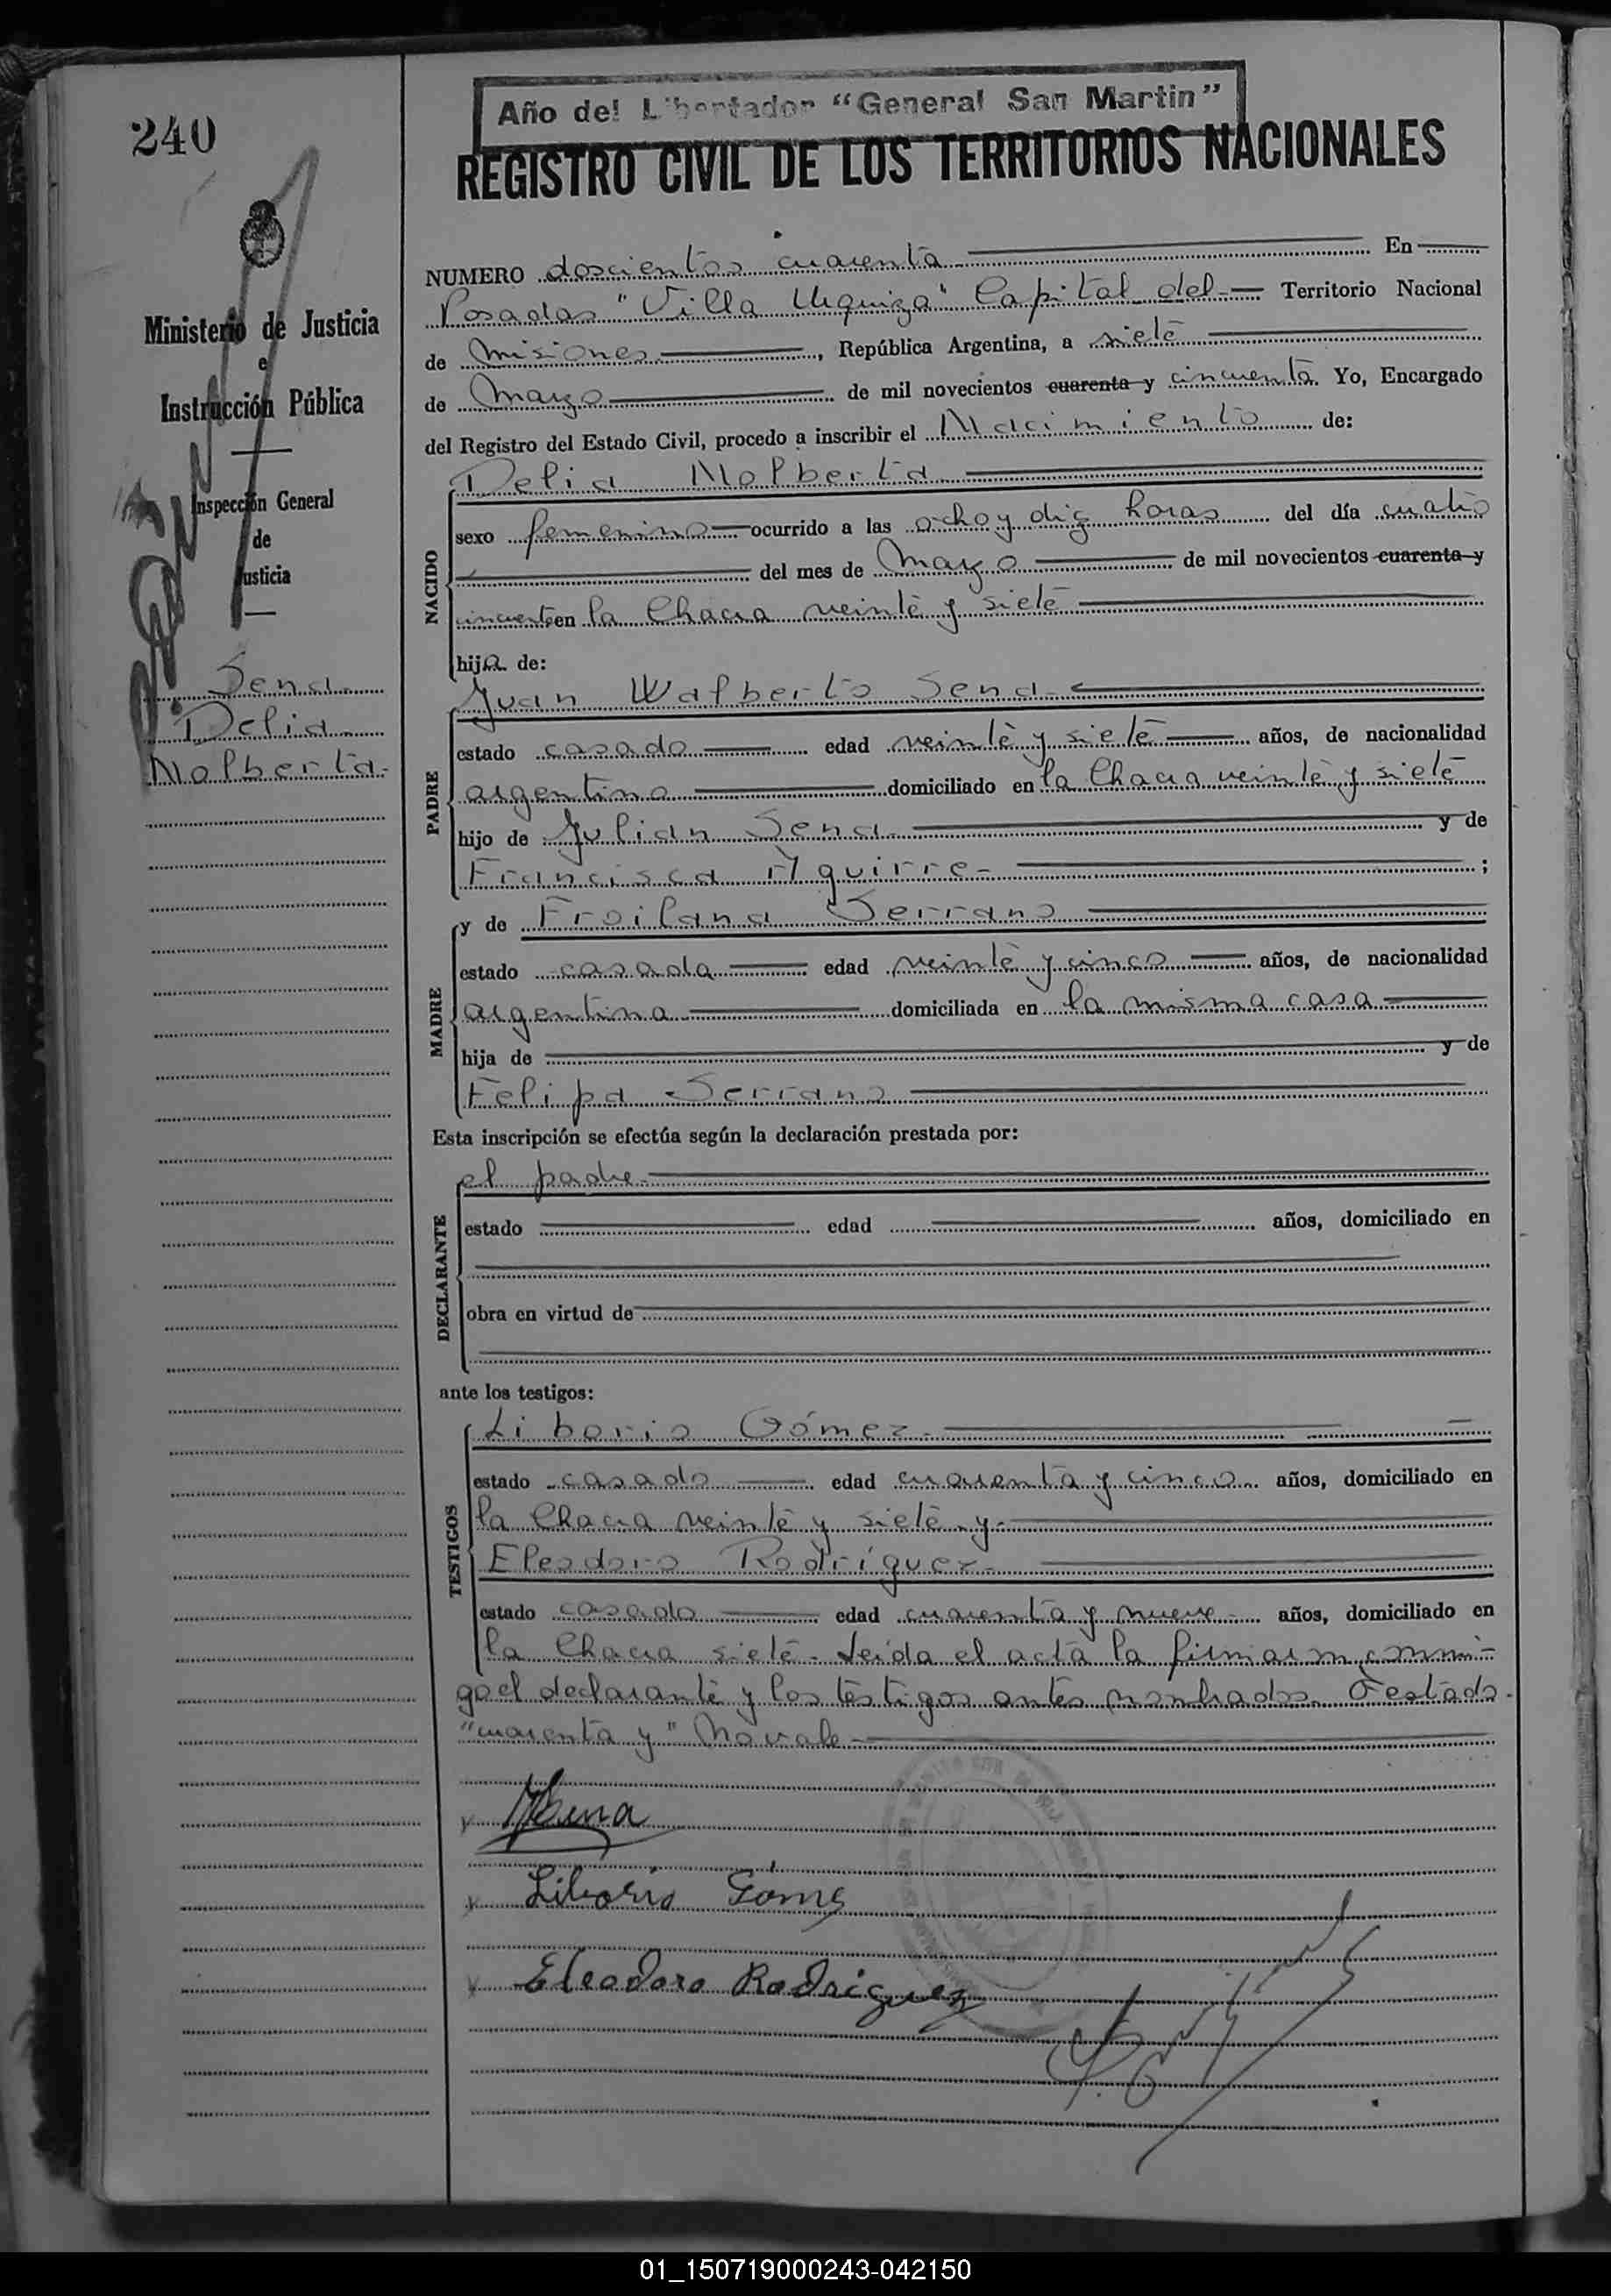 240
Año del Libertador "General San Martin"
REGISTRO CIVIL DE LOS TERRITORIOS NACIONALES
Ministerio de Justicia
e
Instrucción Pública
Inspección General
de
Justicia
Sena
Delia
Nolberta-
NUMERO doscientos cuarenta En
Posadas "Villa Urquiza" Capital del Territorio Nacional
de Misiones, República Argentina, a siete
de Marzo de mil novecientos cuarenta y cincuenta. Yo, Encargado
del Registro del Estado Civil, procedo a inscribir el Nacimiento de:
NACIDO
Delia Nolberta
sexo femenino ocurrido a las ocho y diez horas del día cuatro
del mes de Marzo de mil novecientos cuarenta y
cincuenta en la Chacra veinte y siete
hija de:
PADRE
Juan Walberto Sena
estado casado edad veinte y siete años, de nacionalidad
argentino domiciliado en la Chacra veinte y siete
hijo de Julian Sena y de
Francisca Aguirre- ;
MADRE
y de Froilana Serrano
estado casada edad veinte y cinco años, de nacionalidad
argentina domiciliada en la misma casa
hija de y de
Felipa Serrano
Esta inscripción se efectúa según la declaración prestada por:
DECLARANTE
el padre-
estado edad años, domiciliado en
obra en virtud de
ante los testigos:
TESTIGOS
Liborio Gómez-
estado casado edad cuarenta y cinco años, domiciliado en
la Chacra veinte y siete y-
Eleodoro Rodríguez-
estado casado edad cuarenta y nueve- años, domiciliado en
la Chacra siete- Leída el acta la firmaron conmi-
go el declarante y los testigos antes nombrados. Testado-
"cuarenta y" No vale-
Sena
Liborio Gómez
Eleodoro Rodríguez
01_150719000243-042150